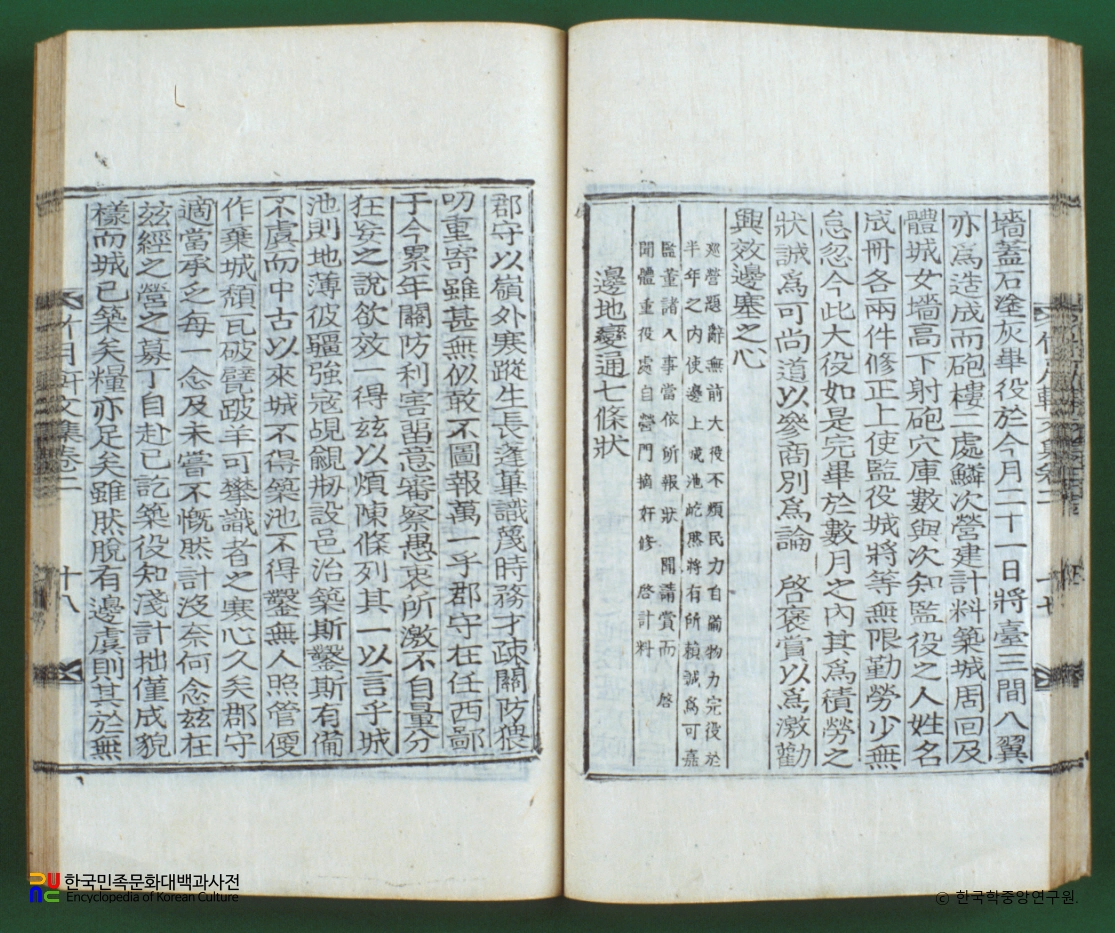 墻蓋石塗灰畢役於今月二十一日將臺三間八翼
亦爲造成而砲樓一處鱗次營建計料築城周回及
體城女墻高下射砲穴庫數與次知監役之人姓名
成冊各兩件修正上使監役城將等無限勤勞少無
怠忽今此大役如是完畢於數月之內其爲積勞之
狀誠爲可尚道以參商別爲論 啓褒嘗以爲激勸
興效邊塞之心
巡營題辭無前大役不煩民力自備物力完役於
半年之內使邊上城池屹然將有所賴誠爲可嘉
監董諸人事當依所報狀 聞請賞而 啓
聞體重役處自營門摘奸修 啓計料
邊地變通七條狀
郡守以嶺外寒蹤生長蓬蓽識蔑時務才疎關防猥
叨重寄雖甚無似敢不圖報萬一乎郡守在任西鄙
于今累年關防利害畱意審察愚衷所激不自量分
狂妄之說欲效一得玆以煩陳條列其一以言乎城
池則地薄彼疆強冦覘覦刱設邑治築斯鑿斯有備
不虞而中古以來城不得築池不得鑿無人照管便
作棄城頹瓦破甓跛羊可攀識者之寒心久矣郡守
適當承乏每一念及未嘗不慨然計沒奈何念玆在
玆經之營之募丁自赴已訖築役知淺計拙僅成貌
樣而城已築矣糧亦足矣雖肰脫有邊虞則其於無
文集卷二
十八
한국민족문화대백과사전
Encyclopedia of Korean Culture
ⓒ 한국학중앙연구원.